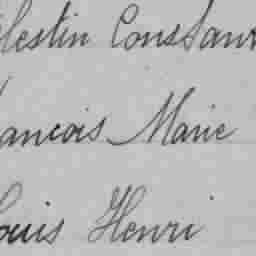 lestin Constan
ancois Marie
ouis Henri